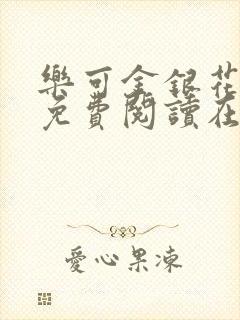 樂可金銀花
免費閱讀在
愛心果凍